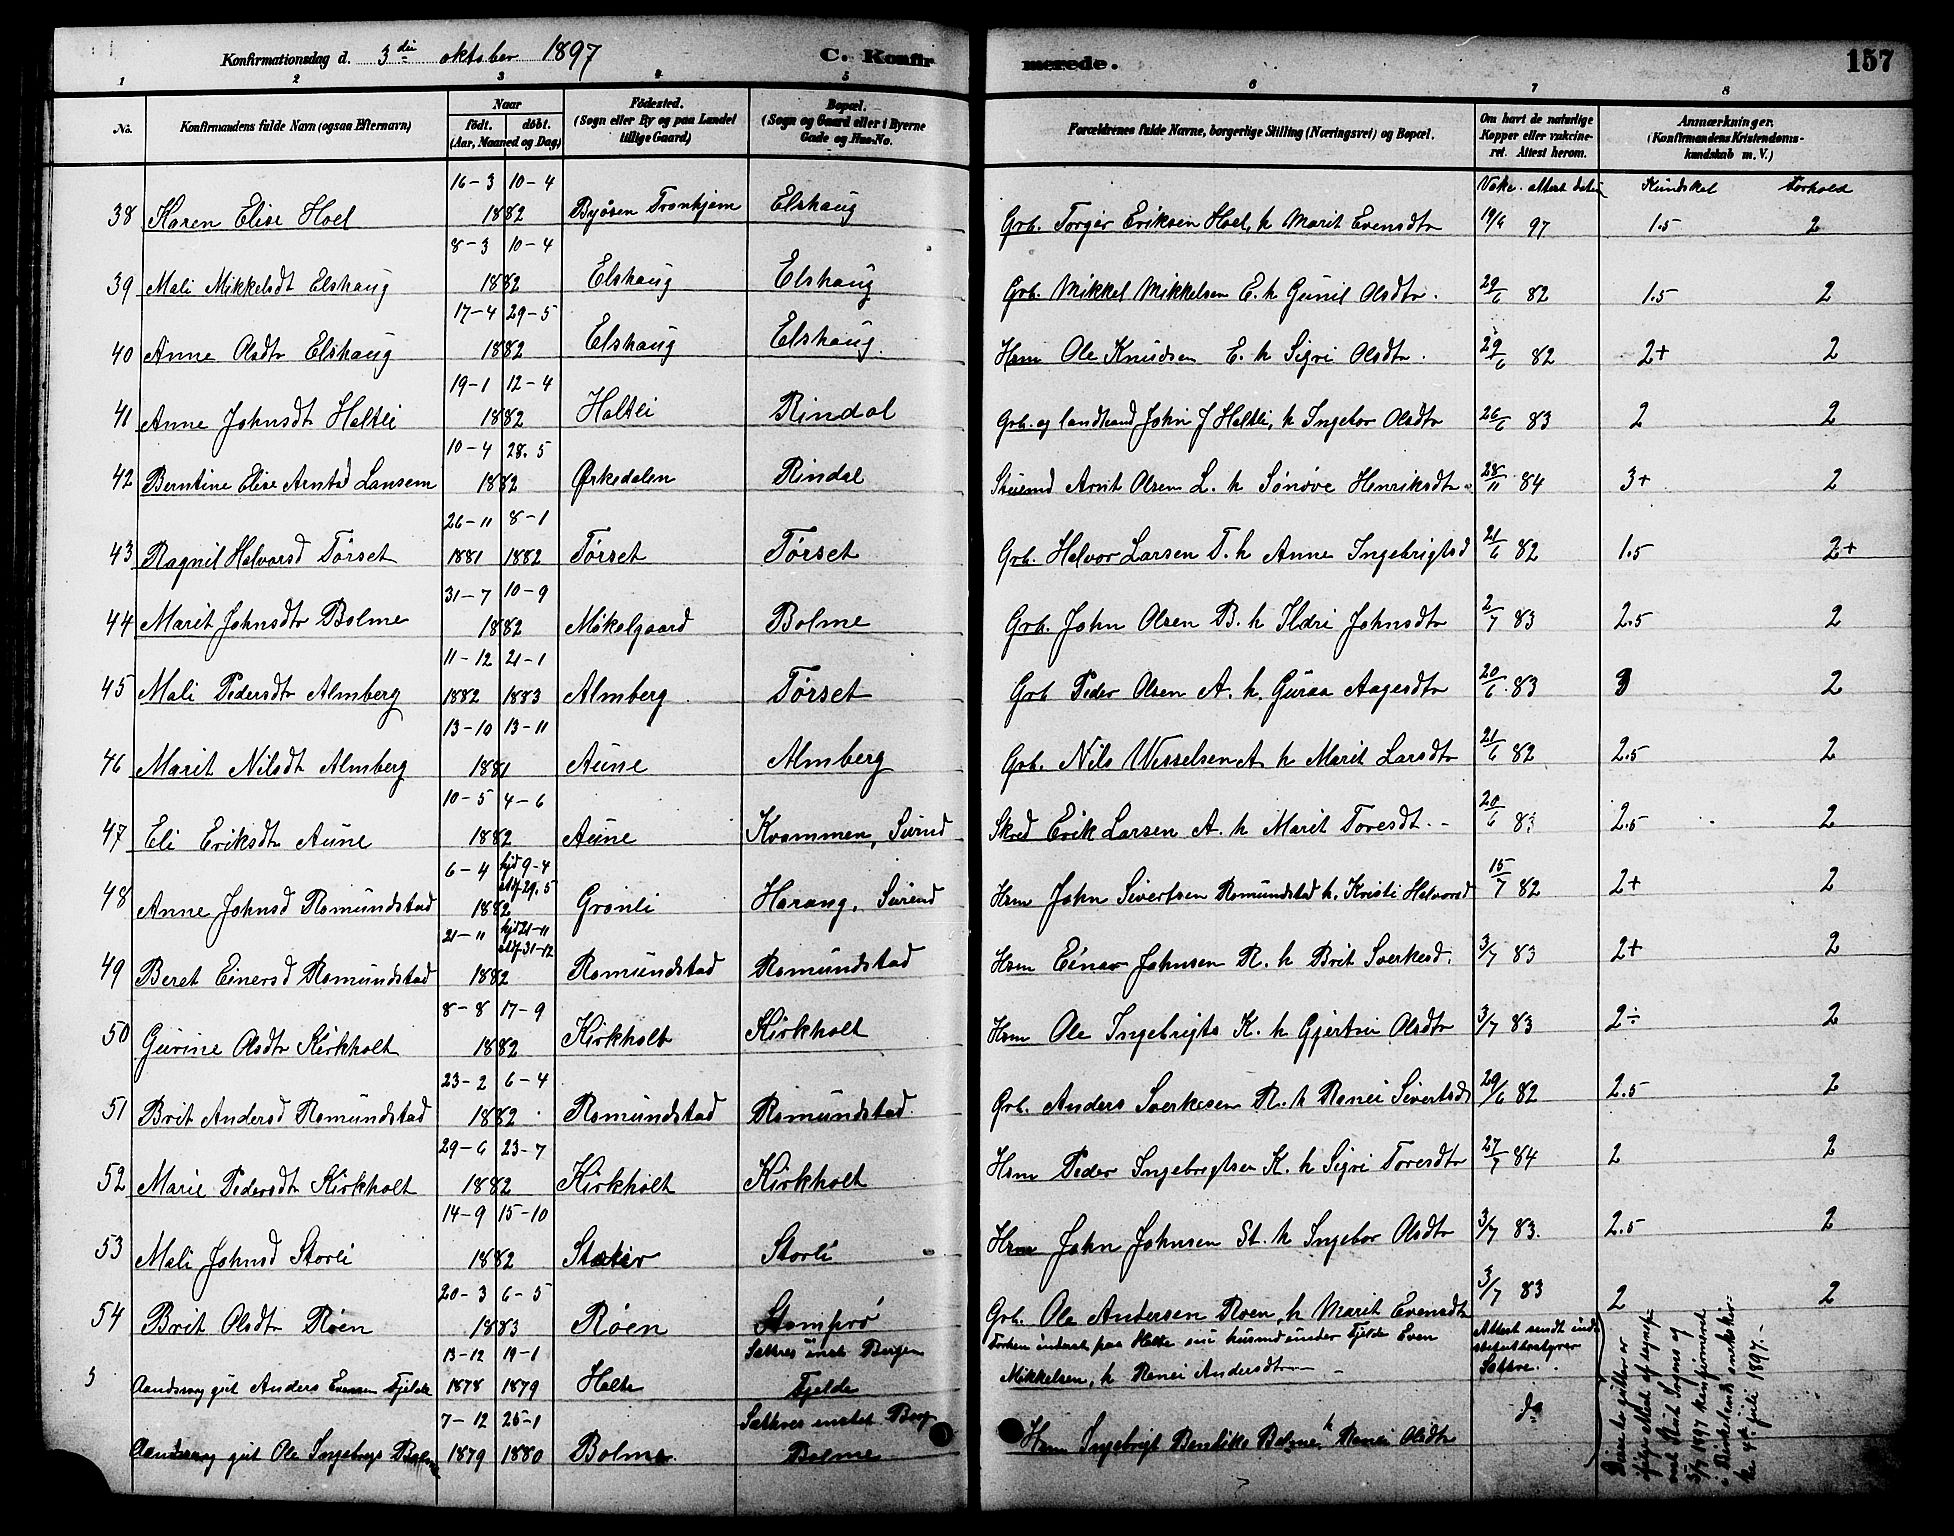 Konfirmationsdag d. 3die oktober 1897 C. Konfirmerede. 157
1 2 3 4 5 6 7 8
No. Konfirmandens fulde Navn (ogsaa Efternavn) Naar født. døbt. (Aar, Maaned og Dag) Fødested. (Sogn eller By og paa Landet tillige Gaard) Bopæl. (Sogn og Gaard eller i Byerne Gade og Hus-No. Forældrenes fulde Navne, borgerlige Stilling (Næringsvei) og Bopæl. Om havt de naturlige Kopper eller vakcineret. Attest herom. Anmærkninger. (Konfirmandens Kristendomskundskab m. V.)
Vakc. attest datum Kundskab Forhold
38 Karen Elise Hoel 16-3 10-4 1882 Byåsen Tronhjem Elshaug Grb. Torger Eriksen Hoel, h Marit Evensdtr 19/4 97 1.5 2
39 Mali Mikkelsdt Elshaug 8-3 10-4 1882 Elshaug Elshaug Grb. Mikkel Mikkelsen E. h Gunil Olsdtr. 29/6 82 1.5 2
40 Anne Olsdtr Elshaug 17-4 29-5 1882 Elshaug Elshaug. Hsm Ole Knudsen E. h Sigri Olsdtr. 29/6 82 2+ 2
41 Anne Johnsdt Haltli 19-1 12-4 1882 Haltli Rindal Grb. og landhand John J Haltli, h Ingebor Olsdtr 26/6 83 2 2
42 Berntine Elise Arntsd Lansem 10-4 28.5 1882 Ørkedalen Rindal Arnt Olsen L. h Sønøve Henriksdtr. 28/11 84 3+ 2
43 Ragnil Halvorsd Tørset 26-11 8-1 1881 1882 Tørset Tørset Grb. Halvor Larsen T. h Anne Ingebrigtsd 21/6 82 1.5 2+
44 Marit Johnsdtr Bolme 31-7 10-9 1882 Mikelgaard Bolme Grb. John Olsen B. h Ildri Johnsdtr 2/7 83 2.5 2
45 Mali Pedersdtr Almberg 11-12 21-1 1882 1883 Almberg Tørset Grb Peder Olsen A. h. Guraa Aagesdtr 20/6. 83 3 2
46 Marit Nilsdt Almberg 13-10 13-11 1881 Aune Almberg Grb. Nils Wesselsen A h Marit Larsdtr 21/6 82 2.5 2
47 Eli Eriksdtr Aune 10-5 4-6 1882 Aune Kvammen, Surnd Skred Erik Larsen A. h Marit Toresdt. 20/6 83 2.5 2
48 Anne Johnsd Romundstad 6-4 hjd 9-4 stdf. 29.5 1882 Grønli Harang, Surend Hsm John Sivertsen Romundstad h. Kristi Halvorsd 15/7 82 2+ 2
49 Beret Einersd Romundstad 21-11 hjd 21-11 stdf 31-12 1882 Romundstad Romundstad Hsm Einar Johnsen R. h Brit Sverkesd. 3/7 83 2+ 2
50 Gurine Olsdtr Kirkholt 8-8 17-9 1882 Kirkholt Kirkholt Hsm Ole Ingebrigts K. h Gjertrui Olsdtr 3/7 83 2÷ 2
51 Brit Andersd Romundstad 23-2 6-4 1882 Romundstad Romundstad. Grb. Anders Sverkesen R. h Ranei Sivertsd 29/6 82 2.5 2
52 Marie Pedersdtr Kirkholt 29-6 23-7 1882 Kirkholt Kirkholt Hsm Peder Ingebrigtsen K. h Sigri Toresdtr 27/7 84 2 2
53 Mali Johnsd Storli 14-9 15-10 1882 Storli Hsm John Johnsen St. h Ingebor Olsdtr 3/7 83. 2.5 2
54 Brit Olsdtr Røen 20-3 6-5 1883 Røen Stomprø Grb. Ole Andersen Røen, h Marit Evensdtr 3/7 83 2 2
Aandssvag gut Anders Evensen Fjelde 13-12 19-1 1878 1879 Halte Sættres inst Bergen Fjelde paa Halte nu husmd under Fjelde Even Mikkelsen, h Ranei Andersdtr Attest sendt Sættre.
Aandssvag gut Ole Ingebrigs Bolme 7-12 25-1 1879 1880 Bolme. Sættres instit Berg Bolme Hsm Ingebrigt Bendiks Bolme h Ranei Olsdtr do
Disse to gutter er
3/7 1897 konfirmeret
4de juli 1897.